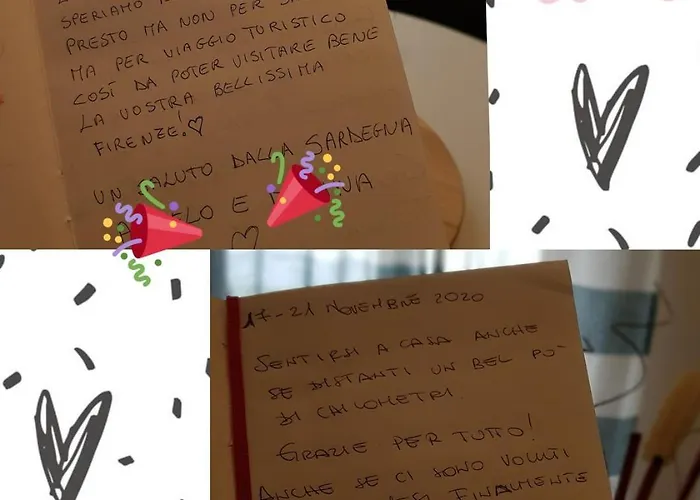 SPERIAMO
PRESTO MA NON PER
MA PER VIAGGIO TURISTICO
COSÍ DA POTER VISITARE BENE
LA VOSTRA BELLISSIMA
FIRENZE!♡
UN SALUTO DALLA SARDEGNA
E
♡
17-21 NOVEMBRE 2020
SENTIRSI A CASA ANCHE
SE DISTANTI UN BEL PO'
DI CHILOMETRI.
GRAZIE PER TUTTO!
ANCHE SE CI SONO VOLUTI
FINALMENTE